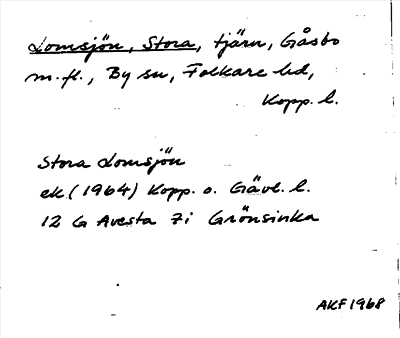 Lomsjön, Stora, tjärn, Gåsbo
m.fl., By sn, Folkare hd,
Kopp. l.
Stora Lomsjön
ek (1964) Kopp. o. Gävl. l.
12 G Avesta 7i Grönsinka
AKF 1968